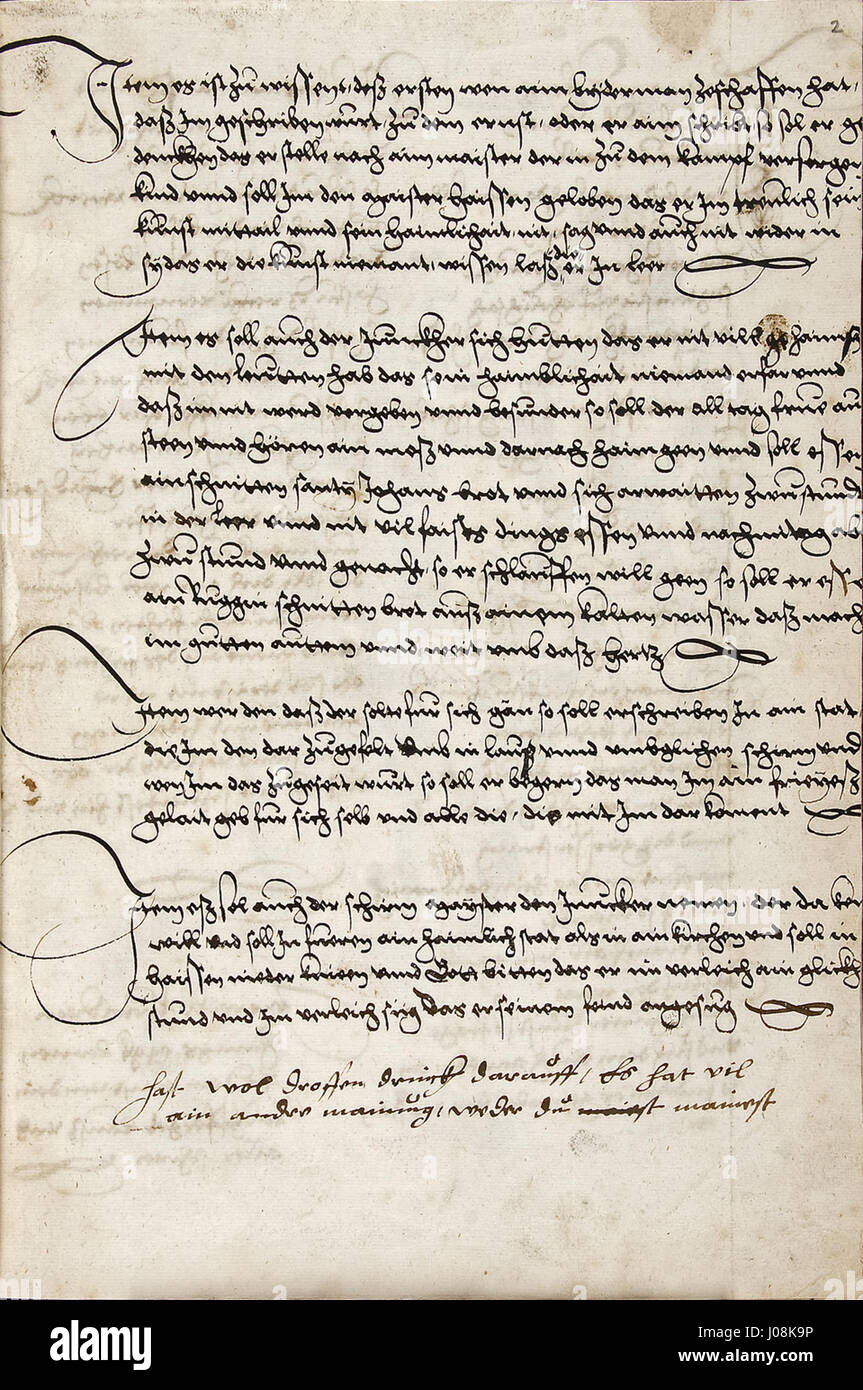 2
Item es ist zu wissent, deß ersten wen aim byderman ze schaffen hat,
daß im geschriben wurt, zu dem ernst, oder er aim schribt so sol er ge
denckhen das er stelle nach aim maister der in zu dem kampf versorgen
kind vnnd soll im den maister haissen geloben das er im trewlich sein
kunst mittail vnnd sein haimlichait, nit, sag vnnd auch nit wider in
sy das er die kunst niemant, wissen laß die er in leer
Item es soll auch der Junckher sich hutten das er nit vill
mit den leutten hab das sein haimblichait niemand erfar vnnd
daß im nit werd vergeben vnnd besunder so soll der all tag frue auf
steen vnnd hören ain meß vnnd darnach haim geen vnnd soll essen
ain schnitten santy Johans brot vnnd sich arwaitten zwu stundt
in der leer vnnd nit vil faistes dings essen vnnd nachmittag aber
zwu stund vnnd, so er schlauffen will geen so soll er esse
ain Ruggin schnitten brot auß ainem kalten wasser daß mach
im gutten auttem vnnd weit vmb daß hertz
Item wer den daß der solte fur sich gän so soll er schreiben in ain stat
die im den dar zu gefelt vmb in vnnd schirm vnd
wen im das zugeseit wurt so soll er begern das man im ain freyeß
gelait geb fur sich selb vnd alle die, die mit im dar koment
Item eß sol auch der schirm mayster den Juncker nemen, der da
will vnd soll in fueren ain haimlich stat als in ain kirchen vnd soll in
haissen nieder knieen vnnd Gott bitten das er im verleich ain glickh
stund vnd im verleich sig das er seinem feind angesug
hast wol droffen druckh darauff, Es hat vil
ain ander mainung, weder du mainest
alamy
Image ID: J08K9P
www.alamy.com